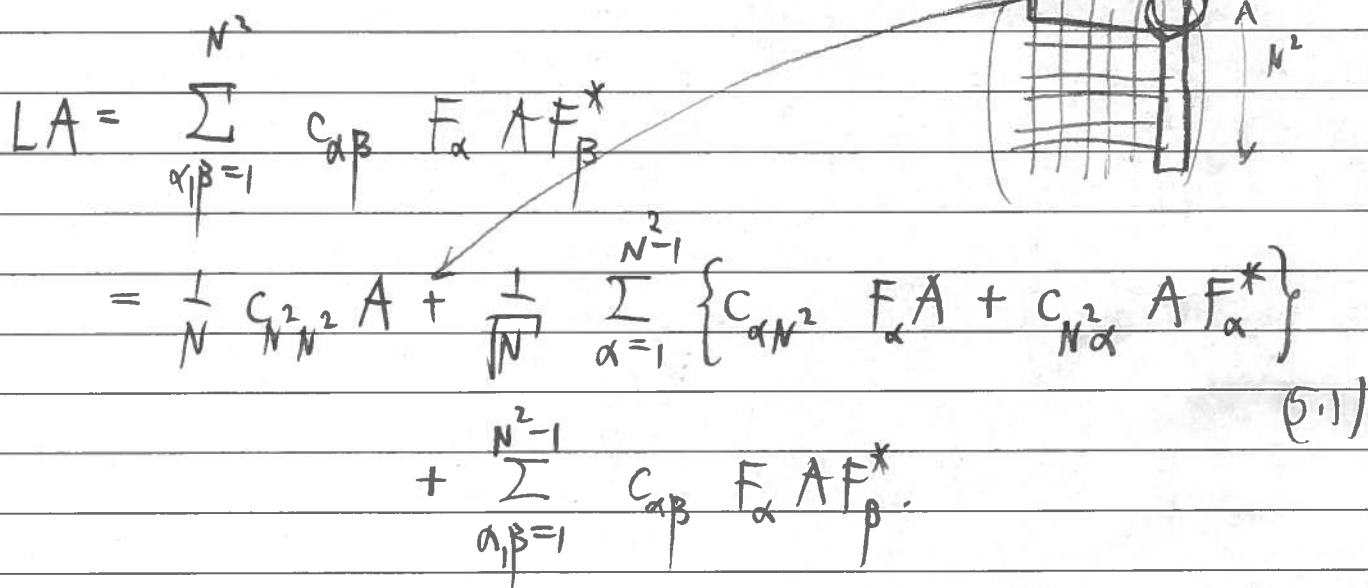 A
N²
LA = \sum_{α,β=1}^{N²} c_{αβ} F_α A F_β^*
= \frac{1}{N} c_{N²N²} A + \frac{1}{\sqrt{N}} \sum_{α=1}^{N²-1} { c_{αN²} F_α A + c_{N²α} A F_α^* }
(5.1)
+ \sum_{α,β=1}^{N²-1} c_{αβ} F_α A F_β^*.